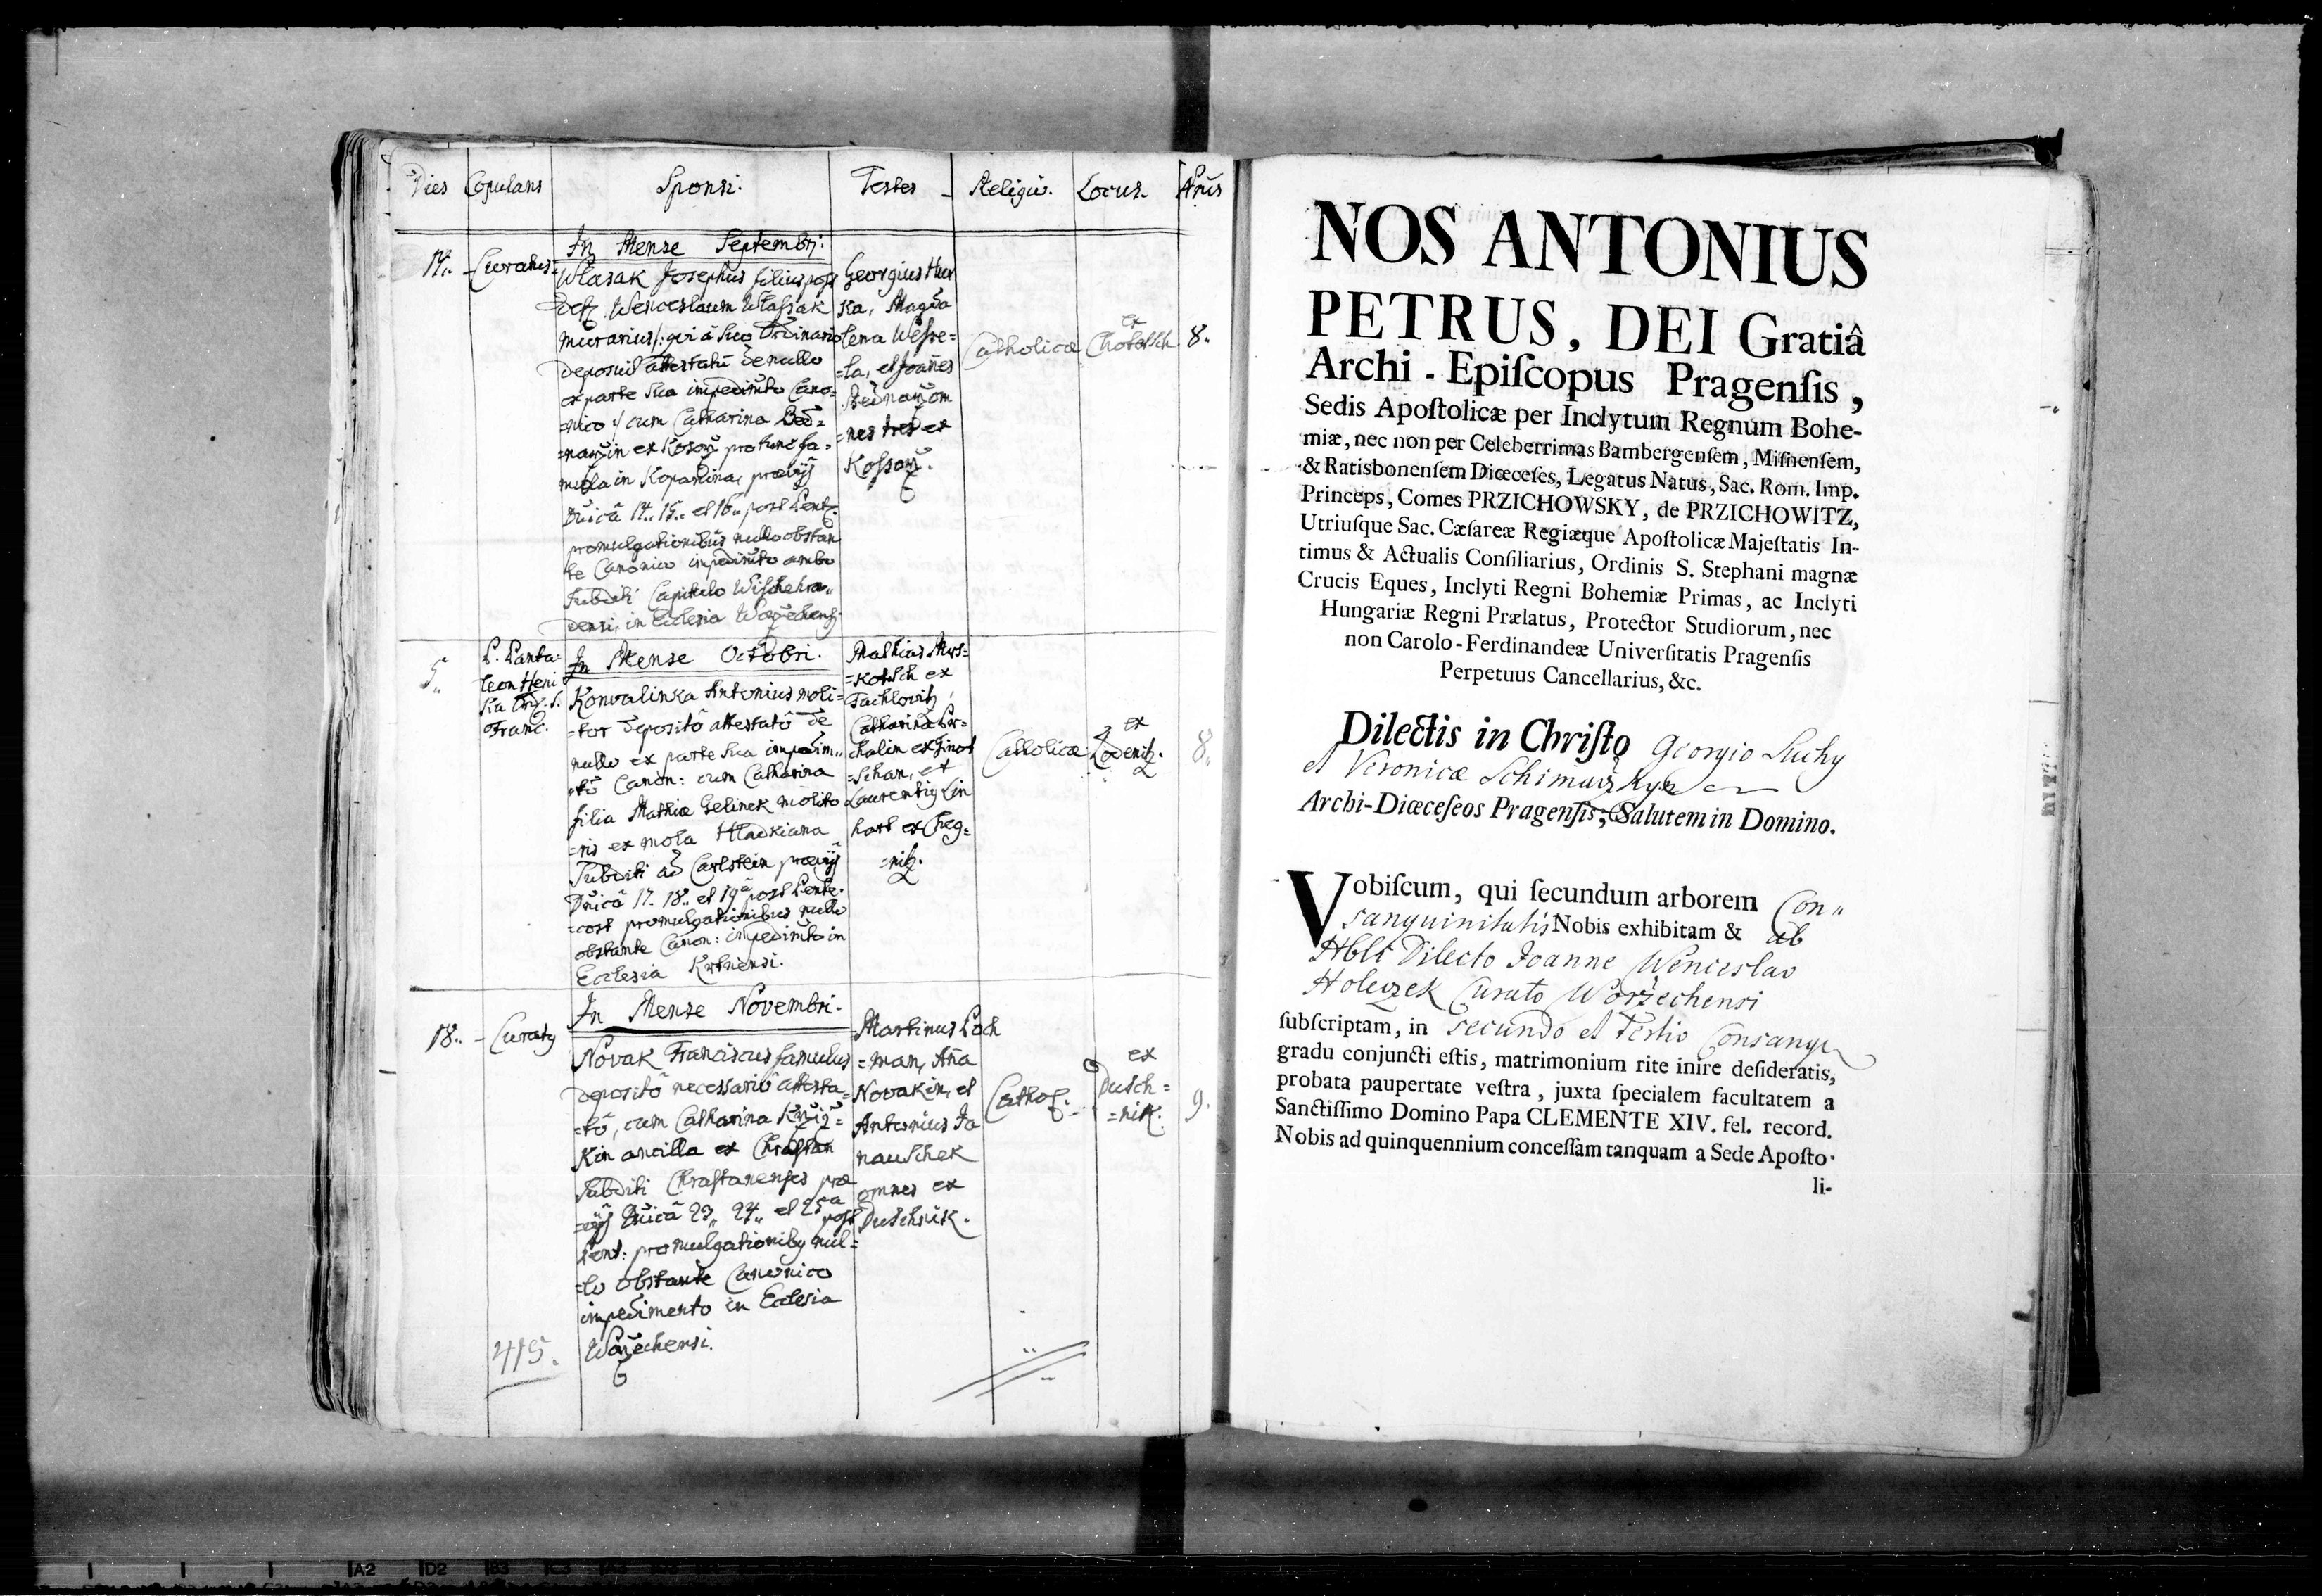 Dies Copulans Sponsi. Testes Religio. Locus Añus
In Mense Septembri.
17.. Curatus
Wlasak Josephus filius post
Def. Wenceslaum Wlassak
murarius /: qui à suo Ordinario
deposuit attestatū de nullo
ex parte sua impedimto Cano=
=nico :/ cum Catharina Bed=
=narzin ex Kosorz pro tunc fa=
mula in Kopanina, prævijs
Dnicâ 14.. 15.. et 16.. post Pent.
promulgationibus nullo obstan
te Canonico impedimto ambo
Subditi Capitulo Wischehra,,
densi, in Ecclesia Worzechensi.
Georgius Hur
ka, Magda
lena Wesse=
=la, et Joanes
Bednarz om
=nes tres ex
Kossorz.
Catholica
ex
Chotetsch
8.
5..
P. Panta=
leon Heni
ka Ord. S.
Franc.
In Mense Octobri.
Konvalinka Antonius moli=
=tor depositô attestatô de
nullo ex parte sua impedim,,
=tô Canon: cum Catharina
filia Mathiæ Gelinek molito
=ris ex mola Hladkiana
Subditi ad Carlstein prævijs
Dnicâ 17.. 18.. et 19â post Pente=
=cost promulgationibus nullo
obstante Canon: impedimto in
Ecclesia
Mathias
=kotsch ex
Tachlovitz,
Catharina
chalin ex Jinot
=schan, et
Laurentius Lin
hart ex Cheg=
=nitz.
Catholica
ex
Lodenitz.
8..
18.. Curatus
In Mense Novembri.
Novak Franciscus famulus
depositô necessariô attesta=
=tô, cum Catharina
kin ancilla ex Chrastan
Subditi Chrastanenses præ
=vijs Dnicâ 23,, 24,, et 25â post
Pent: promulgationibus nul=
=lo obstante Canonico
impedimento in Ecclesia
Worzechensi.
Martinus Lach
=man, Aña
Novakin, et
Antonius Ja
nauschek
omnes ex
Duschnik.
Cathol.
ex
Dusch=
=nik.
9.
415.
NOS ANTONIUS
PETRUS, DEI Gratiâ
Archi-Epiſcopus Pragenſis,
Sedis Apoſtolicæ per Inclytum Regnum Bohe-
miæ, nec non per Celeberrimas Bambergenſem, Miſnenſem,
& Ratisbonenſem Diœceſes, Legatus Natus, Sac. Rom. Imp.
Princeps, Comes PRZICHOWSKY, de PRZICHOWITZ,
Utriuſque Sac. Cæſareæ Regiæque Apoſtolicæ Majeſtatis In-
timus & Actualis Conſiliarius, Ordinis S. Stephani magnæ
Crucis Eques, Inclyti Regni Bohemiæ Primas, ac Inclyti
Hungariæ Regni Prælatus, Protector Studiorum, nec
non Carolo-Ferdinandeæ Univerſitatis Pragenſis
Perpetuus Cancellarius, &c.
Dilectis in Chriſto Georgio Suchy
et Veronicæ
Archi-Diœceſeos Pragenſis, Salutem in Domino.
Vobiſcum, qui ſecundum arborem Con,,
sanguinitatis Nobis exhibitam & ab
Hbli Dilecto Joanne Wenceslao
Holeczek Curato Worzechensi
ſubſcriptam, in secundo et Tertio Consangu
gradu conjuncti eſtis, matrimonium rite inire deſideratis,
probata paupertate veſtra, juxta ſpecialem facultatem a
Sanctiſſimo Domino Papa CLEMENTE XIV. fel. record.
Nobis ad quinquennium conceſſam tanquam a Sede Apoſto-
li-
A2 D2 B3 C3